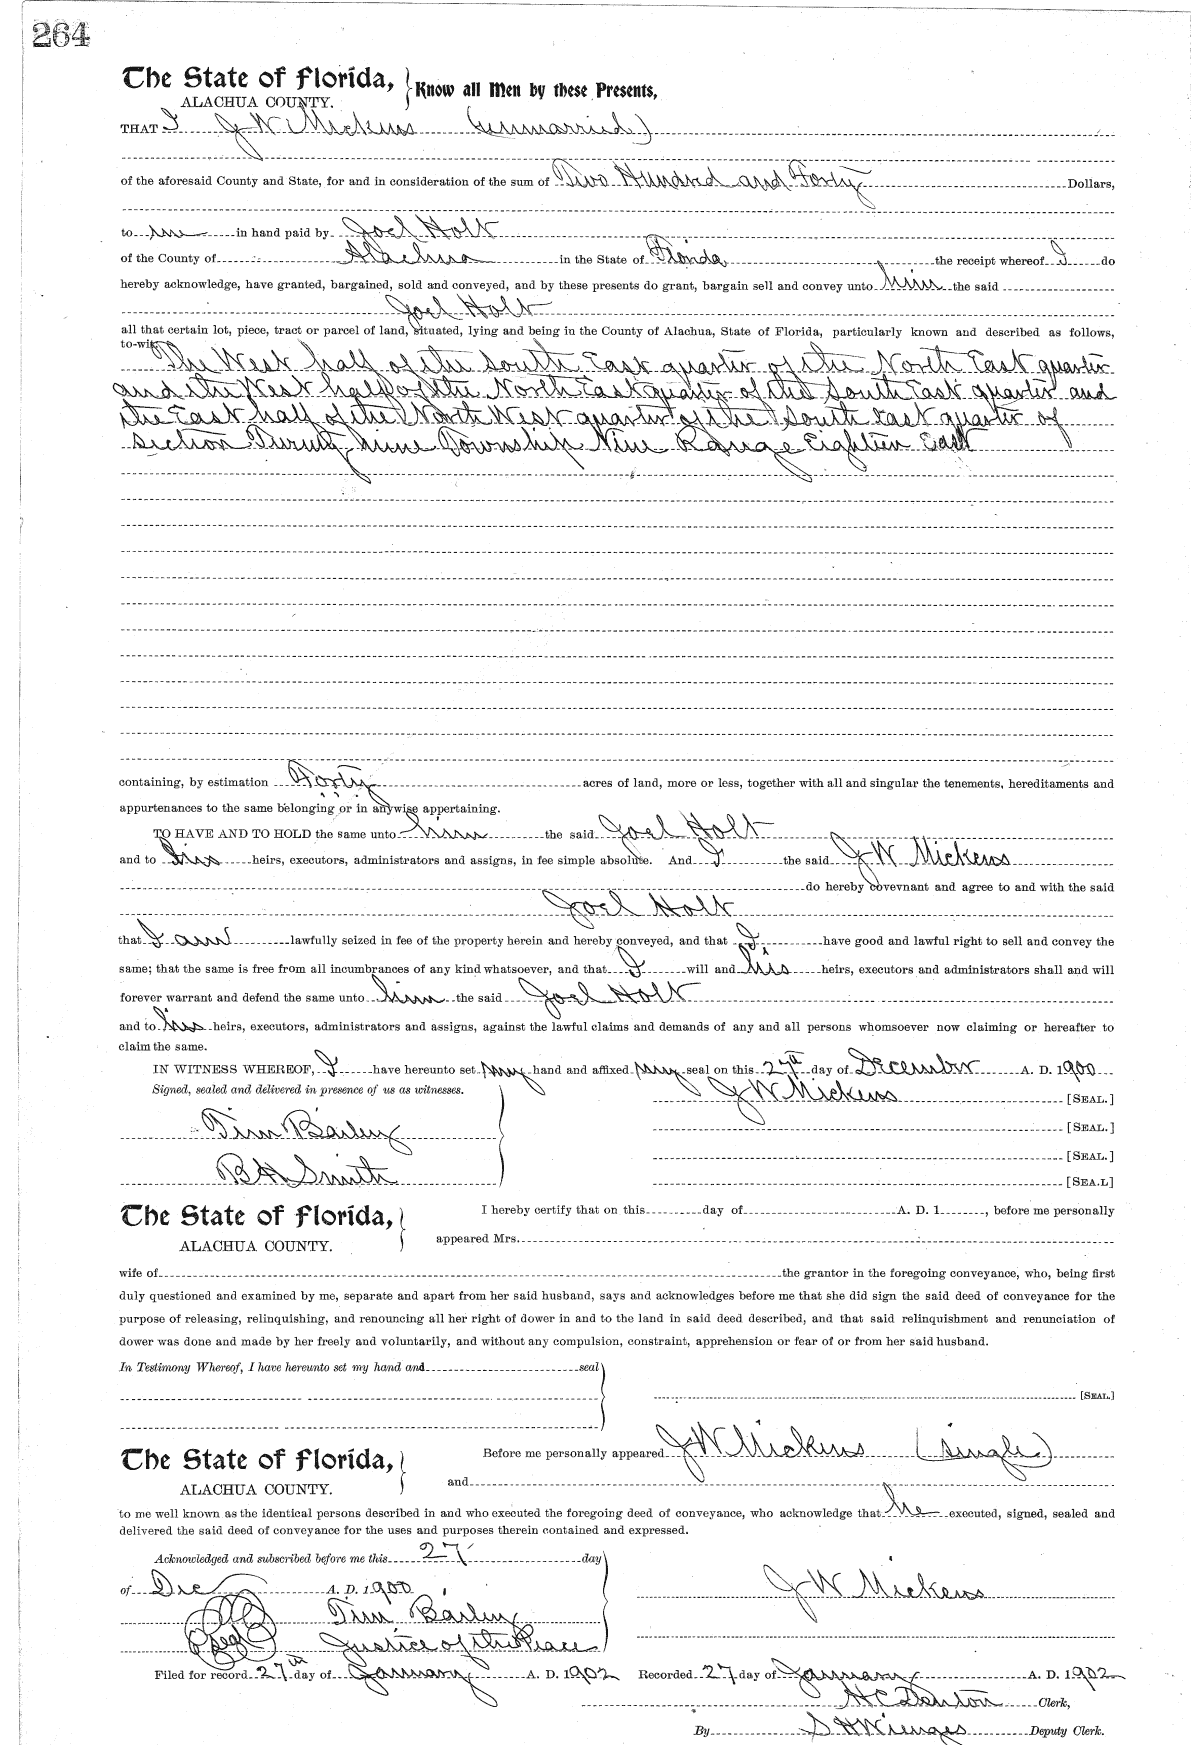 264
The State of Florida, Know all Men by these Presents,
ALACHUA COUNTY.
THAT I J W Mickens (unmarried)
of the aforesaid County and State, for and in consideration of the sum of Two Hundred and Forty Dollars,
to me in hand paid by Joel Holt
of the County of Alachua in the State of Florida the receipt whereof I do
hereby acknowledge, have granted, bargained, sold and conveyed, and by these presents do grant, bargain sell and convey unto him the said
Joel Holt
all that certain lot, piece, tract or parcel of land, situated, lying and being in the County of Alachua, State of Florida, particularly known and described as follows,
to-wit:
The West half of the South East quarter of the North East quarter
and the West half of the North East quarter of the South East quarter and
the East half of the North West quarter of the South East quarter of
Section Twenty nine Township Nine Range Eighteen East
containing, by estimation Forty acres of land, more or less, together with all and singular the tenements, hereditaments and
appurtenances to the same belonging or in anywise appertaining.
TO HAVE AND TO HOLD the same unto him the said Joel Holt
and to his heirs, executors, administrators and assigns, in fee simple absolute. And I the said J W Mickens
do hereby covevnant and agree to and with the said
Joel Holt
that I am lawfully seized in fee of the property herein and hereby conveyed, and that I have good and lawful right to sell and convey the
same; that the same is free from all incumbrances of any kind whatsoever, and that I will and his heirs, executors and administrators shall and will
forever warrant and defend the same unto him the said Joel Holt
and to his heirs, executors, administrators and assigns, against the lawful claims and demands of any and all persons whomsoever now claiming or hereafter to
claim the same.
IN WITNESS WHEREOF, I have hereunto set my hand and affixed my seal on this 27th day of December A. D. 1900
Signed, sealed and delivered in presence of us as witnesses. J W Mickens [SEAL.]
Tim Bailey [SEAL.]
[SEAL.]
B H Smith [SEA.L]
The State of Florida, I hereby certify that on this day of A. D. 1 , before me personally
ALACHUA COUNTY. appeared Mrs.
wife of the grantor in the foregoing conveyance, who, being first
duly questioned and examined by me, separate and apart from her said husband, says and acknowledges before me that she did sign the said deed of conveyance for the
purpose of releasing, relinquishing, and renouncing all her right of dower in and to the land in said deed described, and that said relinquishment and renunciation of
dower was done and made by her freely and voluntarily, and without any compulsion, constraint, apprehension or fear of or from her said husband.
In Testimony Whereof, I have hereunto set my hand and seal
[SEAL.]
The State of Florida, Before me personally appeared J W Mickens (single)
ALACHUA COUNTY. and
to me well known as the identical persons described in and who executed the foregoing deed of conveyance, who acknowledge that he executed, signed, sealed and
delivered the said deed of conveyance for the uses and purposes therein contained and expressed.
Acknowledged and subscribed before me this 27 day
of Dec A. D. 1900 J W Mickens
Tim Bailey
Seal Justice of the Peace
Filed for record 27th day of January A. D. 1902 Recorded 27 day of January A. D. 1902
H C Denton Clerk,
By S H Wienges Deputy Clerk.